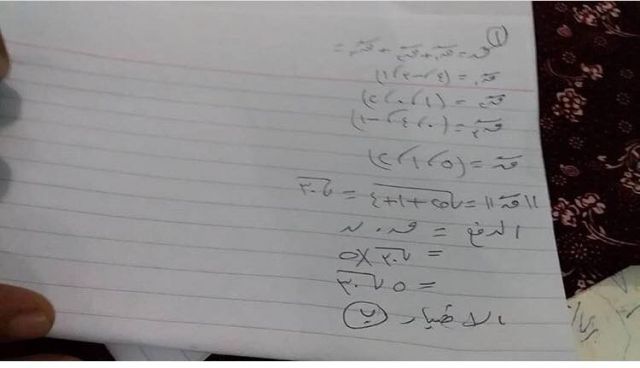 ١
ق = ق١ + ق٢ + ق٣ =
ق١ = (٤، -٢، ١)
ق٢ = (١، ٠، ٢)
ق٣ = (٠، ٣، -١)
ق = (٥، ١، ٢)
||ق|| = √٢٥+١+٤ = √٣٠
الدفع = ق · ن
= √٣٠ × ٥
= ٥√٣٠
الاختيار